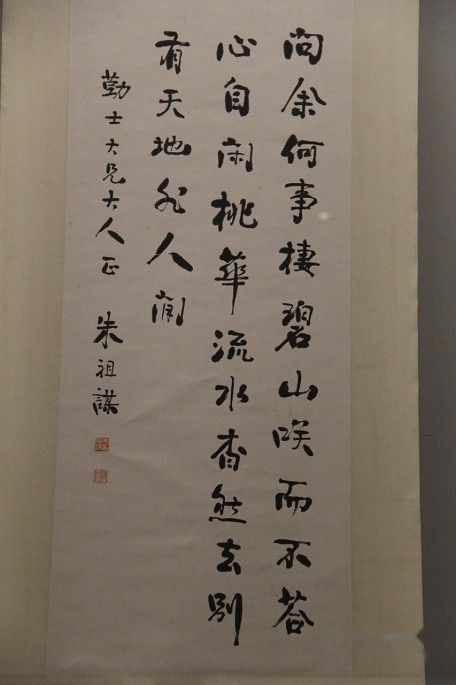 問余何事棲碧山咲而不荅
心自闲桃華流水杳然去別
有天地非人间
勤士大兄大人正
朱祖謀